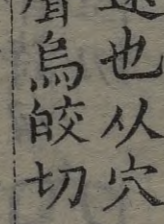 也从穴
烏皎切